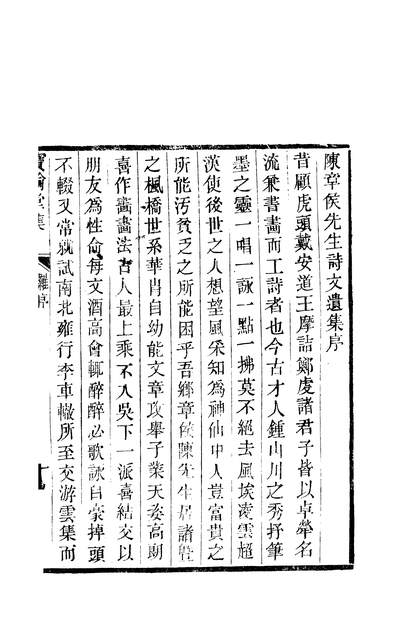 陳章侯先生詩文遺集序
昔顧虎頭戴安道王摩詰鄭虔諸君子皆以卓犖名
流兼書畫而工詩者也今古才人鍾山川之秀抒筆
墨之靈一唱一詠一點一拂莫不絕去風埃凌雲超
漢使後世之人想望風采知為神仙中人豈富貴之
所能汚貧乏之所能困乎吾鄉章侯陳先生居諸曁
之楓橋世系華胄自幼能文章攻舉子業天姿高朗
喜作畵畵法古人最上乘不入吳下一派喜結交以
朋友為性命每文酒高會輒醉醉必歌詠自豪掉頭
不輟又常就試南北雍行李車轍所至交游雲集而
寶綸堂集
羅序